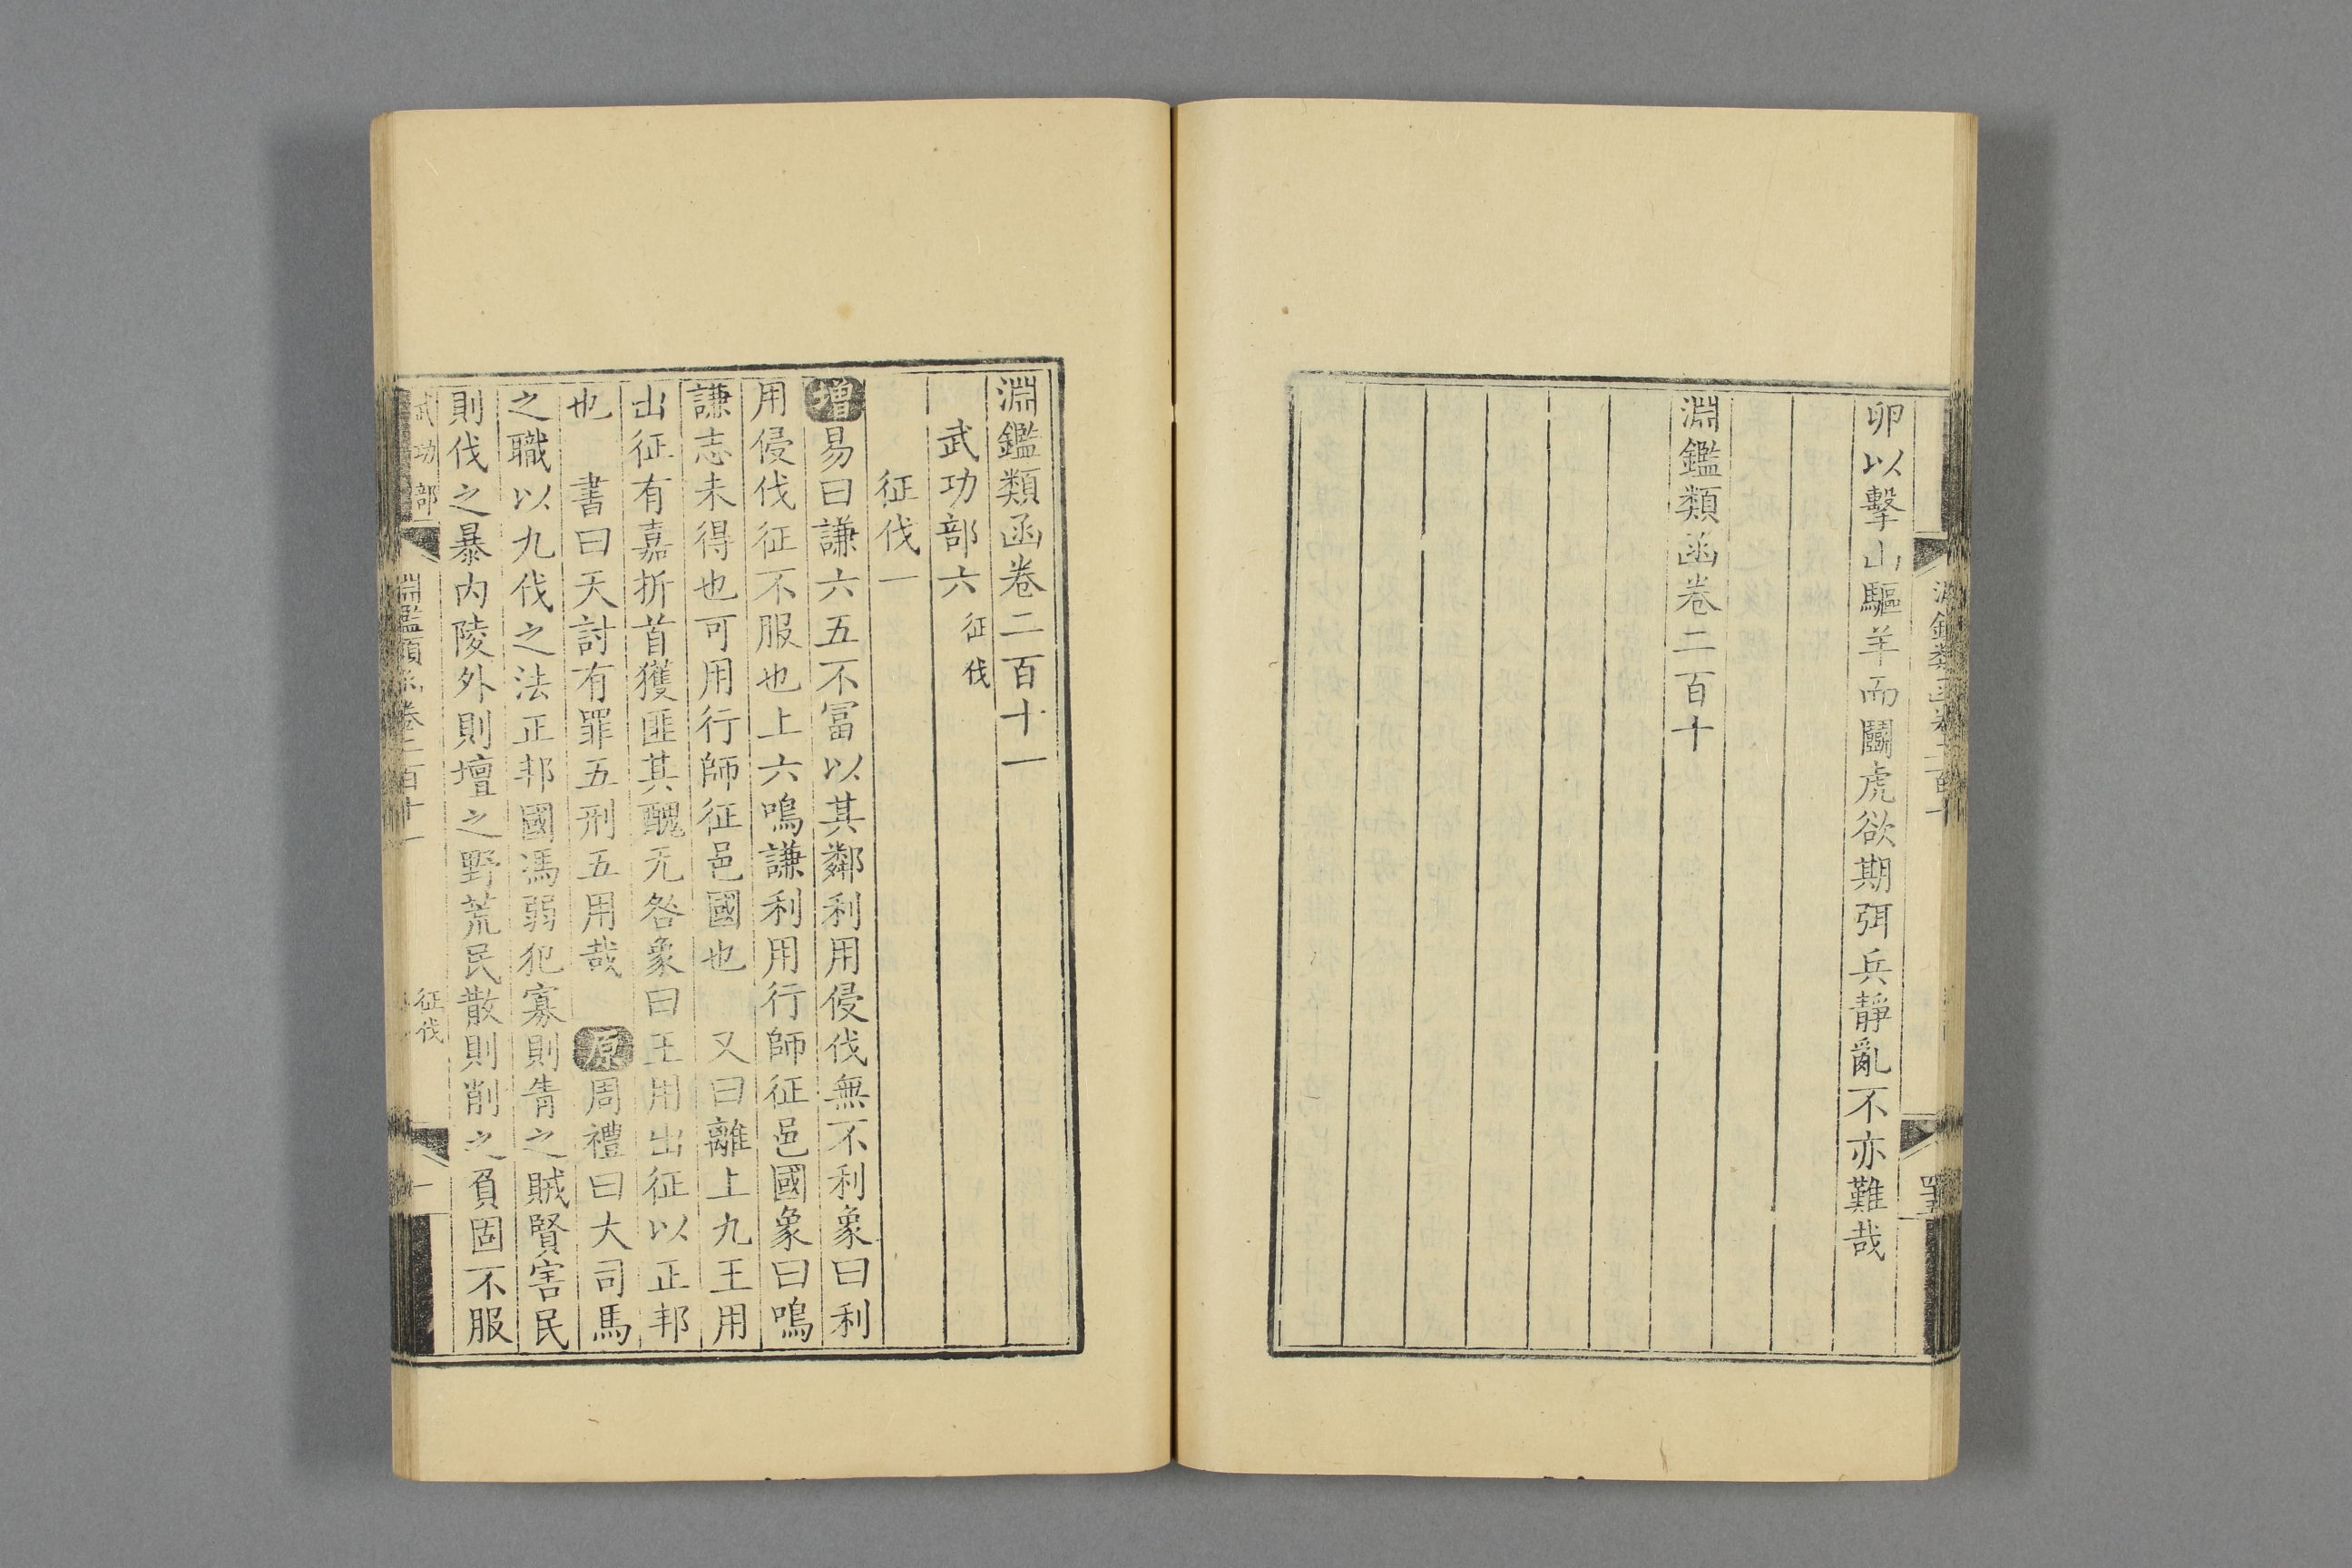 卵以擊山驅羊而鬭虎欲期弭兵靜亂不亦難哉
淵鑑類函卷二百十
淵鑑類函卷二百十
淵鑑類函卷二百十一
武功部六 征伐
征伐一
增易曰謙六五不冨以其鄰利用侵伐無不利象曰利
用侵伐征不服也上六鳴謙利用行師征邑國象曰鳴
謙志未得也可用行師征邑國也 又曰離上九王用
出征有嘉折首獲匪其醜无咎象曰王用出征以正邦
也 書曰天討有罪五刑五用哉 原周禮曰大司馬
之職以九伐之法正邦國馮弱犯寡則眚之賊賢害民
則伐之暴內陵外則壇之野荒民散則削之負固不服
武功部 淵鑑類函卷二百十一 征伐 一